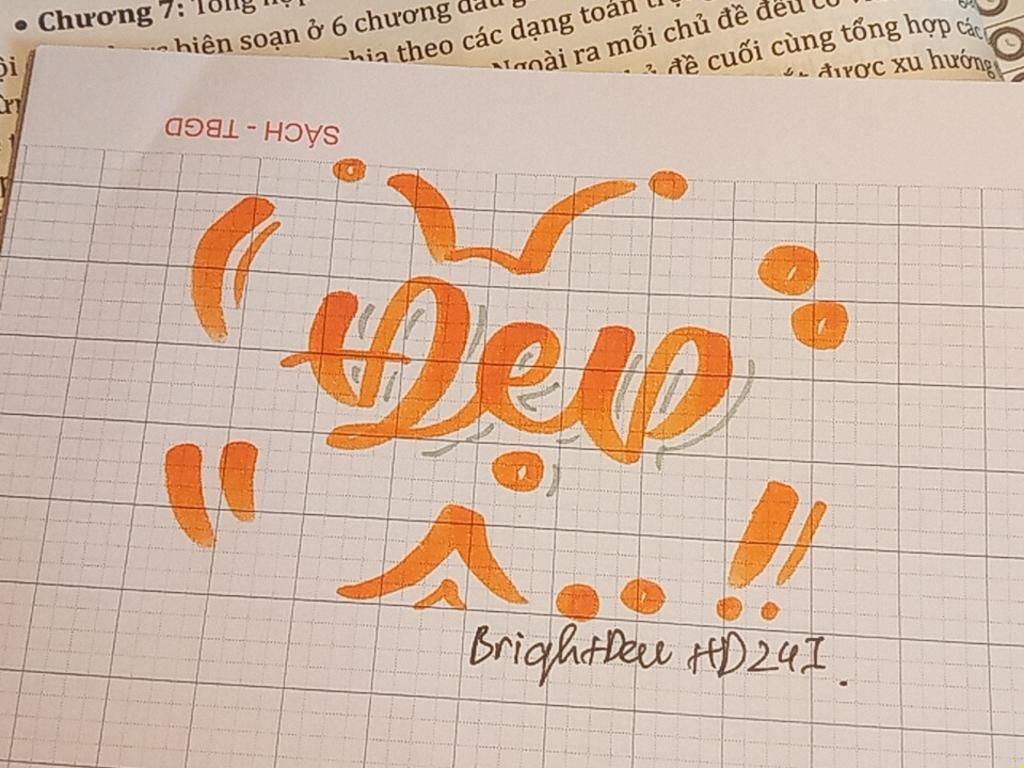 • Chương 7: Tổng
biên soạn ở 6 chương đầu
theo các dạng toán
Ngoài ra mỗi chủ đề đều có
đề cuối cùng tổng hợp các
được xu hướng
SÁCH - TBGD
Đẹp
!!
BrightDew HD24I.